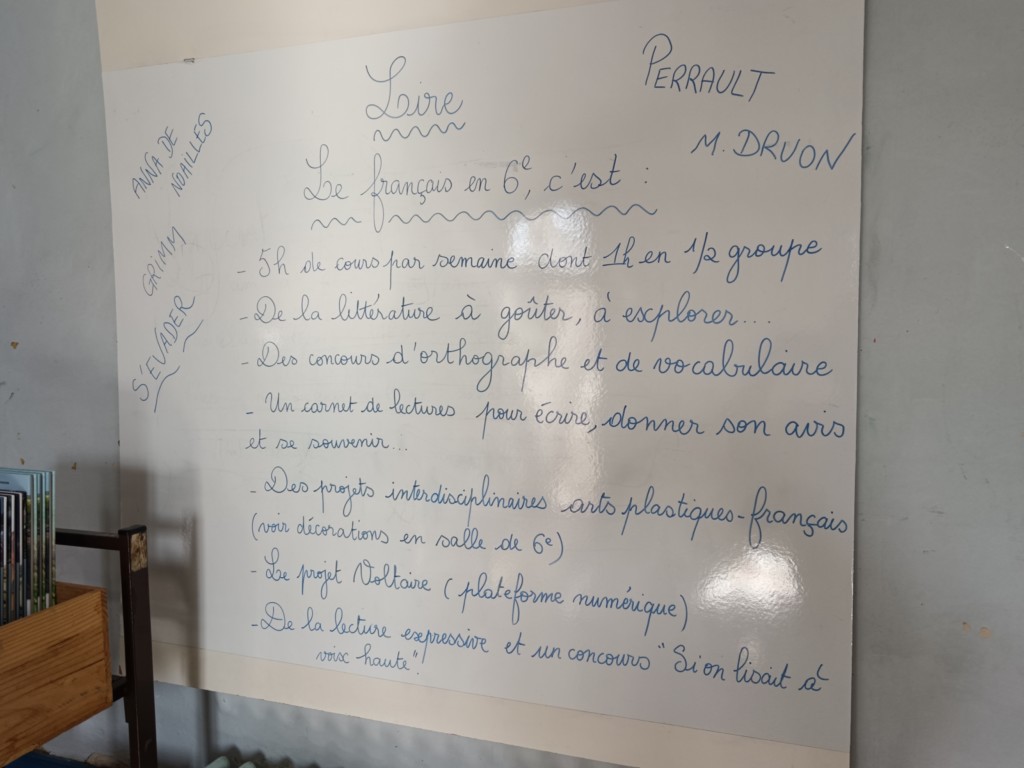 Lire
PERRAULT
M. DRUON
ANNA DE
NOAILLES
GRIMM
S'EVADER
Le français en 6e, c'est :
- 5h de cours par semaine dont 1h en 1/2 groupe
- De la littérature à goûter, à explorer...
- Des concours d'orthographe et de vocabulaire
- Un carnet de lectures pour écrire, donner son avis
et se souvenir...
- Des projets interdisciplinaires arts plastiques-français
(voir décorations en salle de 6e)
- Le projet Voltaire (plateforme numérique)
- De la lecture expressive et un concours "Si on lisait à
voix haute".